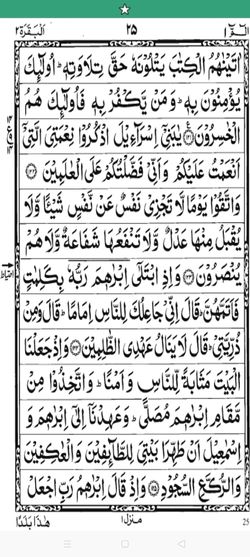 البقرة ٢ ٢٥ الٓمّٓ ١
اٰتَيْنٰهُمُ الْكِتٰبَ يَتْلُوْنَهٗ حَقَّ تِلَاوَتِهٖ ؕ اُولٰٓئِكَ
يُؤْمِنُوْنَ بِهٖ ؕ وَمَنْ يَّكْفُرْ بِهٖ فَاُولٰٓئِكَ هُمُ
الْخٰسِرُوْنَ ﴿۱۲۱﴾ يٰبَنِيْٓ اِسْرَآءِيْلَ اذْكُرُوْا نِعْمَتِيَ الَّتِيْٓ
اَنْعَمْتُ عَلَيْكُمْ وَاَنِّيْ فَضَّلْتُكُمْ عَلَى الْعٰلَمِيْنَ ﴿۱۲۲﴾
وَاتَّقُوْا يَوْمًا لَّا تَجْزِيْ نَفْسٌ عَنْ نَّفْسٍ شَيْئًا وَّلَا
يُقْبَلُ مِنْهَا عَدْلٌ وَّلَا تَنْفَعُهَا شَفَاعَةٌ وَّلَا هُمْ
يُنْصَرُوْنَ ﴿۱۲۳﴾ وَاِذِ ابْتَلٰٓى اِبْرٰهٖمَ رَبُّهٗ بِكَلِمٰتٍ
فَاَتَمَّهُنَّ ؕ قَالَ اِنِّيْ جَاعِلُكَ لِلنَّاسِ اِمَامًا ؕ قَالَ وَمِنْ
ذُرِّيَّتِيْ ؕ قَالَ لَا يَنَالُ عَهْدِي الظّٰلِمِيْنَ ﴿۱۲۴﴾ وَاِذْ جَعَلْنَا
الْبَيْتَ مَثَابَةً لِّلنَّاسِ وَاَمْنًا ؕ وَاتَّخِذُوْا مِنْ
مَّقَامِ اِبْرٰهٖمَ مُصَلًّى ؕ وَعَهِدْنَآ اِلٰٓى اِبْرٰهٖمَ وَ
اِسْمٰعِيْلَ اَنْ طَهِّرَا بَيْتِيَ لِلطَّآئِفِيْنَ وَالْعٰكِفِيْنَ
وَالرُّكَّعِ السُّجُوْدِ ﴿۱۲۵﴾ وَاِذْ قَالَ اِبْرٰهٖمُ رَبِّ اجْعَلْ
هٰذَا بَلَدًا منزل ١ 25